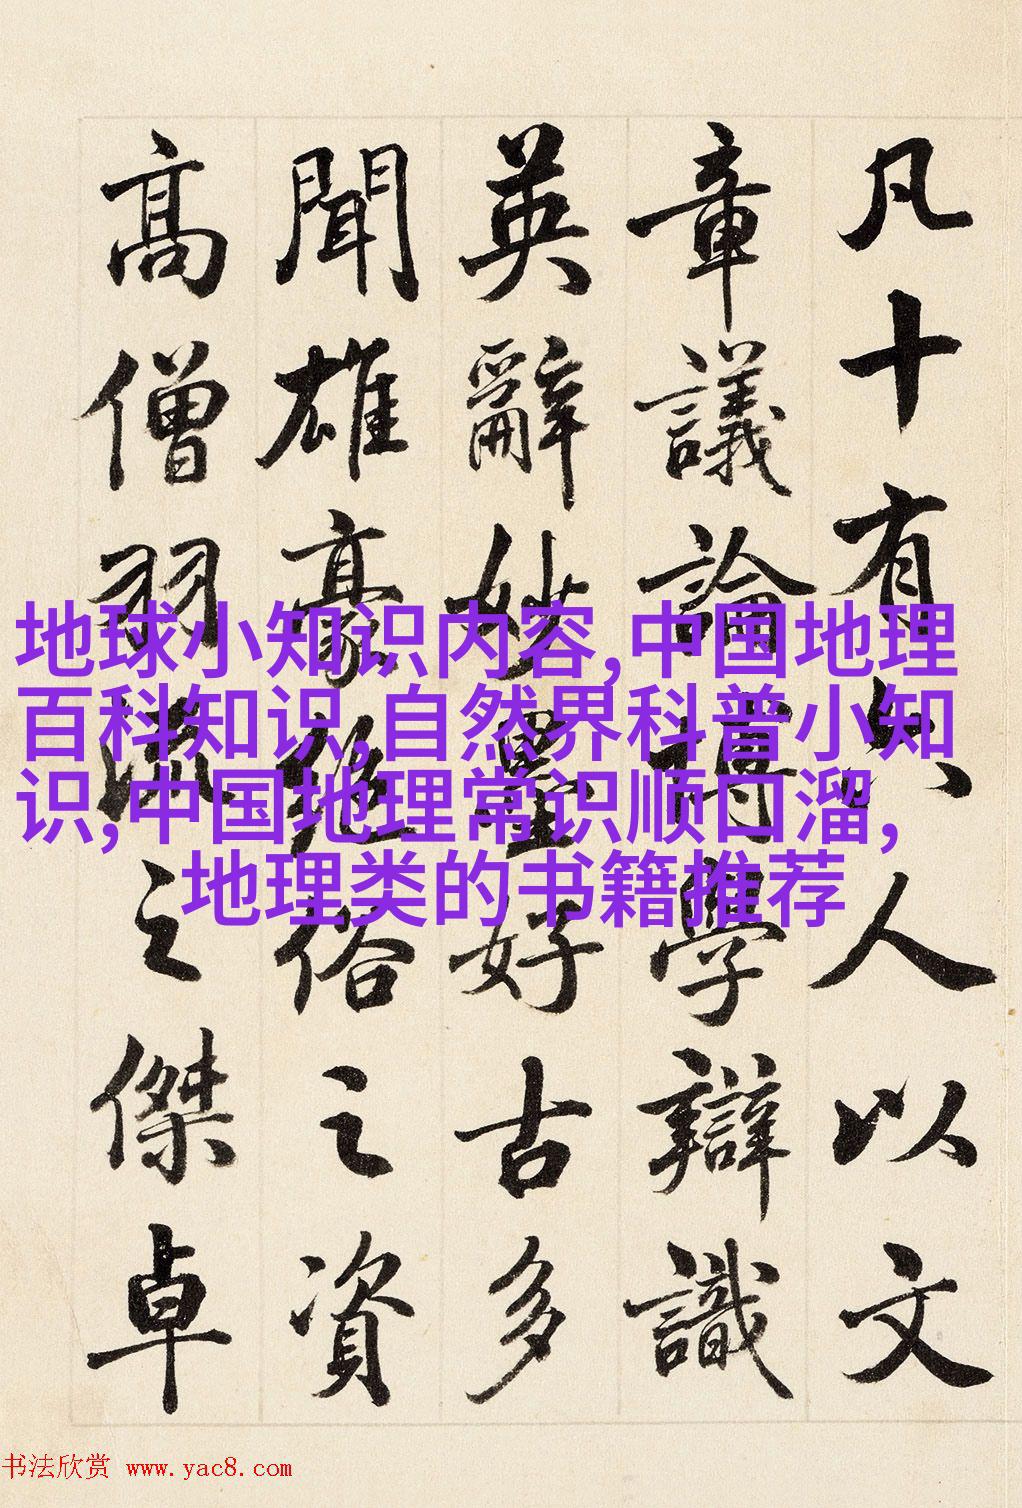 凡十有六人以文
章議論博學辯識
英辭妙墨好古多
聞雄豪絕俗之資
高僧羽流之傑卓
地球小知识内容,中国地理
百科知识,自然界科普小知
识,中国地理常识顺口溜,
地理类的书籍推荐
书法欣赏 www.yac8.com